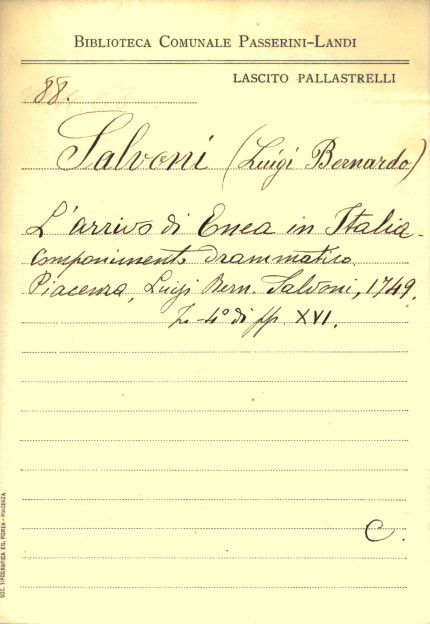 BIBLIOTECA COMUNALE PASSERINI-LANDI
LASCITO PALLASTRELLI
88.
Salvoni (Luigi Bernardo)
L'arrivo di Enea in Italia.
Componimento drammatico.
Piacenza, Luigi Bern. Salvoni, 1749.
In 4º di pp. XVI.
C.
SOC. TIPOGRAFICA ED. PORTA - PIACENZA